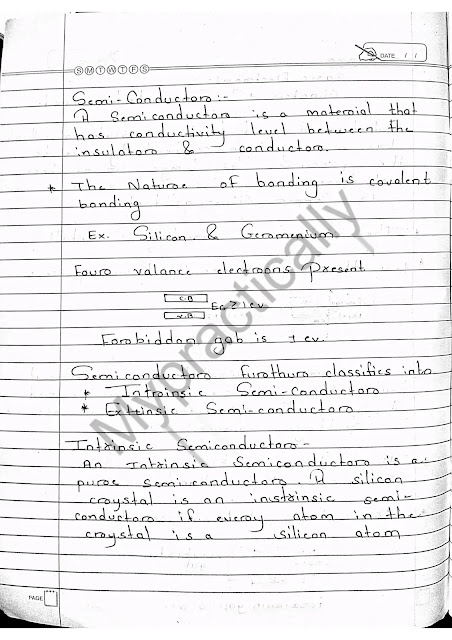 DATE / /
S M T W T F S
Semi-Conductors:-
A Semiconductors is a material that
has conductivity level between the
insulators & conductors.
* The Nature of bonding is covalent
bonding
Ex. Silicon & Geramenium
Four valance electrons present
C.B
V.B
Forbiddan gab is 1 ev.
Semiconductors Furthurs classifics into
* Intrinsic Semi-Conductors
* Extrinsic Semi-conductors
Intrinsic Semiconductors-
An Intrinsic Semiconductors is a
pure semi-conductors. A silican
crystal is an instrinsic semi-
conductors if every atom in the
crystal is a silicon atom
PAGE
Mypractically